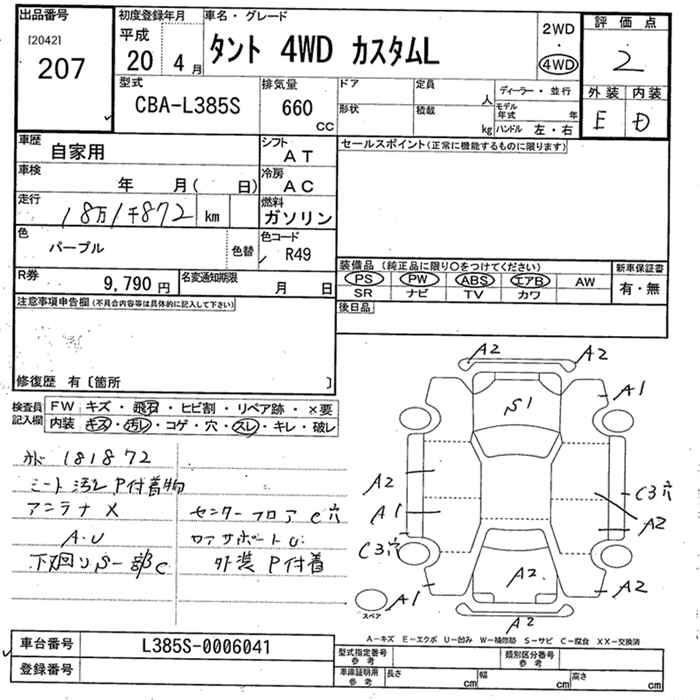 出品番号
[2042]
207
初度登録年月
平成
20 4月
車名・グレード
タント 4WD カスタムL
2WD
4WD
評価点
2
外装 内装
E D
型式
CBA-L385S
排気量
660
CC
ドア
形状
定員
人
積載
kg
ディーラー・並行
モデル年式 年
ハンドル 左・右
車歴
自家用
シフト
AT
セールスポイント(正常に機能するものに限ります)
車検
年 月( 日)
冷房
AC
走行
18万1千872 km
燃料
ガソリン
色
パープル
色替
色コード
R49
R券
9,790円
名変通知期限
月 日
装備品(純正品に限り○をつけてください)
PS PW ABS エアB AW
SR ナビ TV カワ
新車保証書
有・無
注意事項申告欄(不具合内容等は具体的に記入して下さい)
後日品
修復歴 有〔箇所 〕
検査員記入欄
FW キズ・飛石・ヒビ割・リペア跡・×要
内装 キズ・汚レ・コゲ・穴・スレ・キレ・破レ
181872
シート汚レ P付着物
アンテナ X
A・U
下廻りS一部C
センターフロア C穴
外装 P付着
A2
A2
A1
S1
A2
A1
C3穴
C3穴
A2
A2
A1
A2
A2
スペア
A-キズ E-エクボ U-凹み W-補修跡 S-サビ C-腐食 XX-交換済
車台番号
L385S-0006041
登録番号
型式指定番号
参考
類別区分番号
参考
車庫証明用
参考
長さ cm
幅 cm
高さ cm